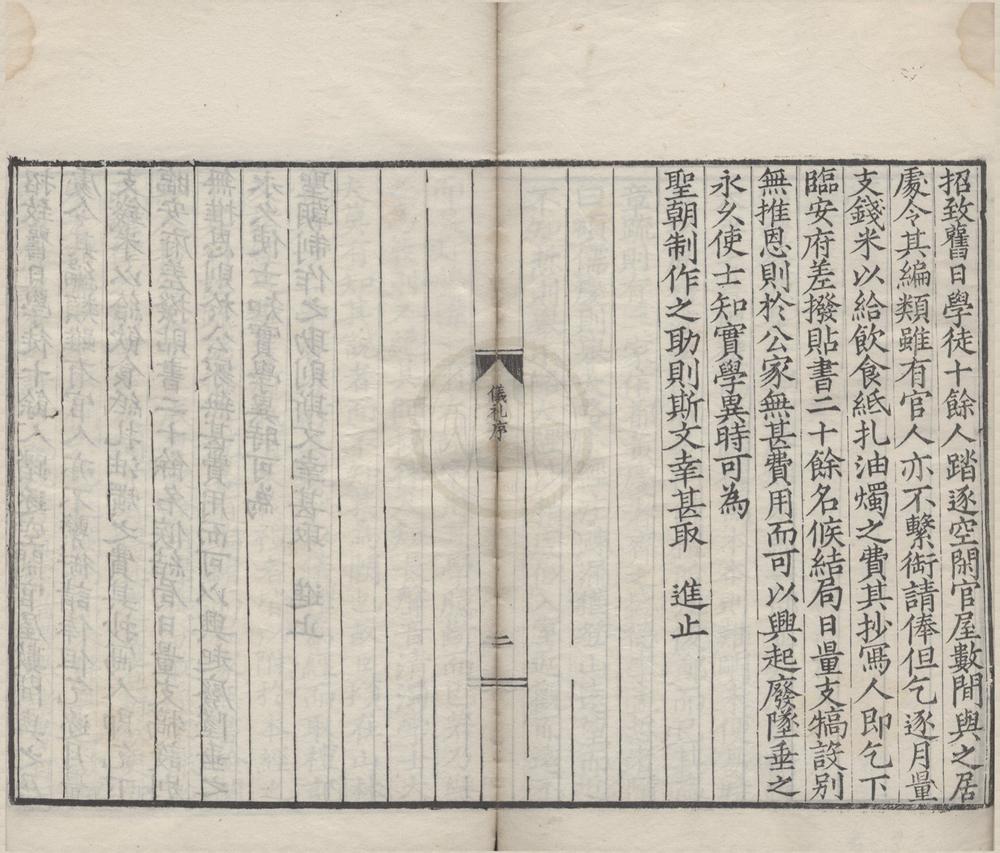 招致舊日學徒十餘人踏逐空閑官屋數間與之居
處令其編類雖有官人亦不繫銜請俸但乞逐月量
支錢米以給飲食紙扎油燭之費其抄寫人即乞下
臨安府差撥貼書二十餘名候結局日量支犒設别
無推恩則於公家無甚費用而可以興起廢墜垂之
永久使士知實學異時可為
聖朝制作之助則斯文幸甚取　進止
儀礼序
二